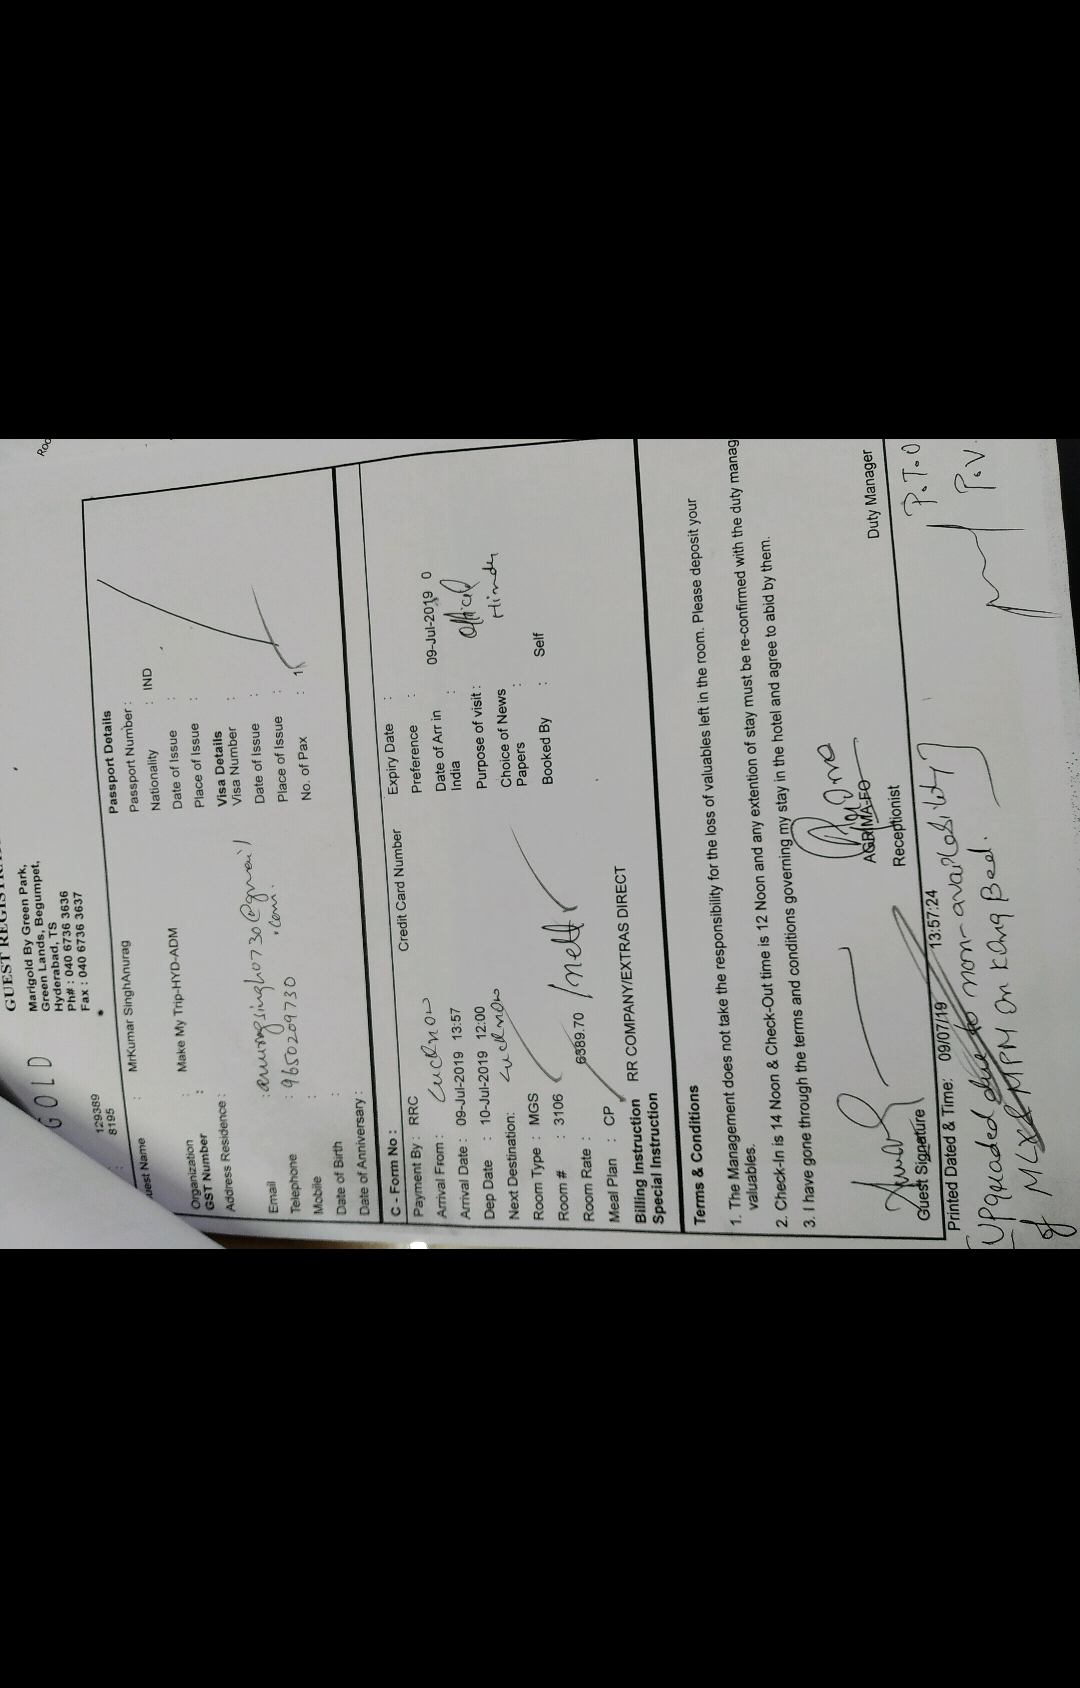 GOLD
GUEST REGISTRA
Marigold By Green Park,
Green Lands, Begumpet,
Hyderabad, TS
Ph# : 040 6736 3636
Fax : 040 6736 3637
Roo
: 129389
8195
uest Name : MrKumar SinghAnurag
Organization : Make My Trip-HYD-ADM
GST Number :
Address Residence :
Email : anuragsingh0730@gmail
.com.
Telephone : 9650209730
Mobile :
Date of Birth :
Date of Anniversary :
Passport Details
Passport Number :
Nationality : IND
Date of Issue :
Place of Issue :
Visa Details
Visa Number :
Date of Issue :
Place of Issue :
No. of Pax : 1
C - Form No :
Payment By : RRC
Arrival From : Lucknow
Arrival Date : 09-Jul-2019 13:57
Dep Date : 10-Jul-2019 12:00
Next Destination: Lucknow
Room Type : MGS
Room # : 3106
Room Rate : 6389.70 /nett
Meal Plan : CP
Billing Instruction RR COMPANY/EXTRAS DIRECT
Special Instruction
Credit Card Number
Expiry Date :
Preference :
Date of Arr in : 09-Jul-2019 0
India
Purpose of visit : Official
Choice of News : Hindu
Papers
Booked By : Self
Terms & Conditions
1. The Management does not take the responsibility for the loss of valuables left in the room. Please deposit your
valuables.
2. Check-In is 14 Noon & Check-Out time is 12 Noon and any extention of stay must be re-confirmed with the duty manag
3. I have gone through the terms and conditions governing my stay in the hotel and agree to abid by them.
AGRIMA-FO
Guest Signature Receptionist Duty Manager
Printed Dated & Time: 09/07/19 13:57:24
P.T.O
Upgraded due to non-availability
of MLX & MPM on King Bed.
P.V.